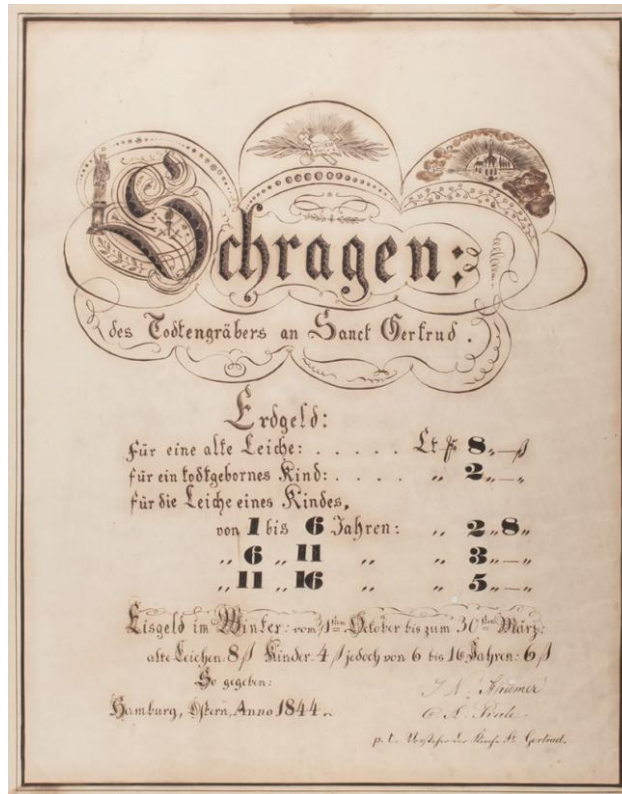 Schragen:
des Todtengräbers an Sanct Gertrud.
Erdgeld:
Für eine alte Leiche: . . . . . Ct. ₰ 8 „ — ß
für ein todtgebornes Kind: . . . . „ 2 „ — „
für die Leiche eines Kindes,
von 1 bis 6 Jahren: „ 2 „ 8 „
„ 6 „ 11 „ „ 3 „ — „
„ 11 „ 16 „ „ 5 „ — „
Eisgeld im Winter: vom 31ten October bis zum 30sten März:
alte Leichen: 8 ß Kinder: 4 ß jedoch von 6 bis 16 Jahren: 6 ß
So gegeben:
Hamburg, Ostern, Anno 1844.
p. t. Vorsteher der Kirche St. Gertrud.